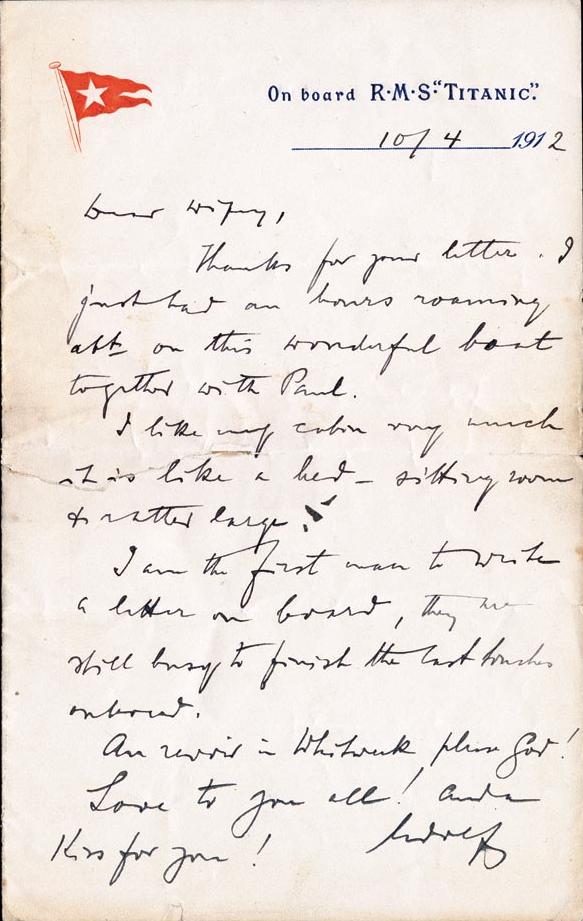 On board R·M·S· "TITANIC".
10/4 1912
Dear Wifey,
Thanks for your letter. I
just had an hours roaming
abt on this wonderful boat
together with Paul.
I like my cabin very much
it is like a bed-sitting room
& rather large.
I am the first man to write
a letter on board, they are
still busy to finish the last touches
onboard.
Au revoir in Whitweek please God!
Love to you all! And a
Kiss for you! Adolf